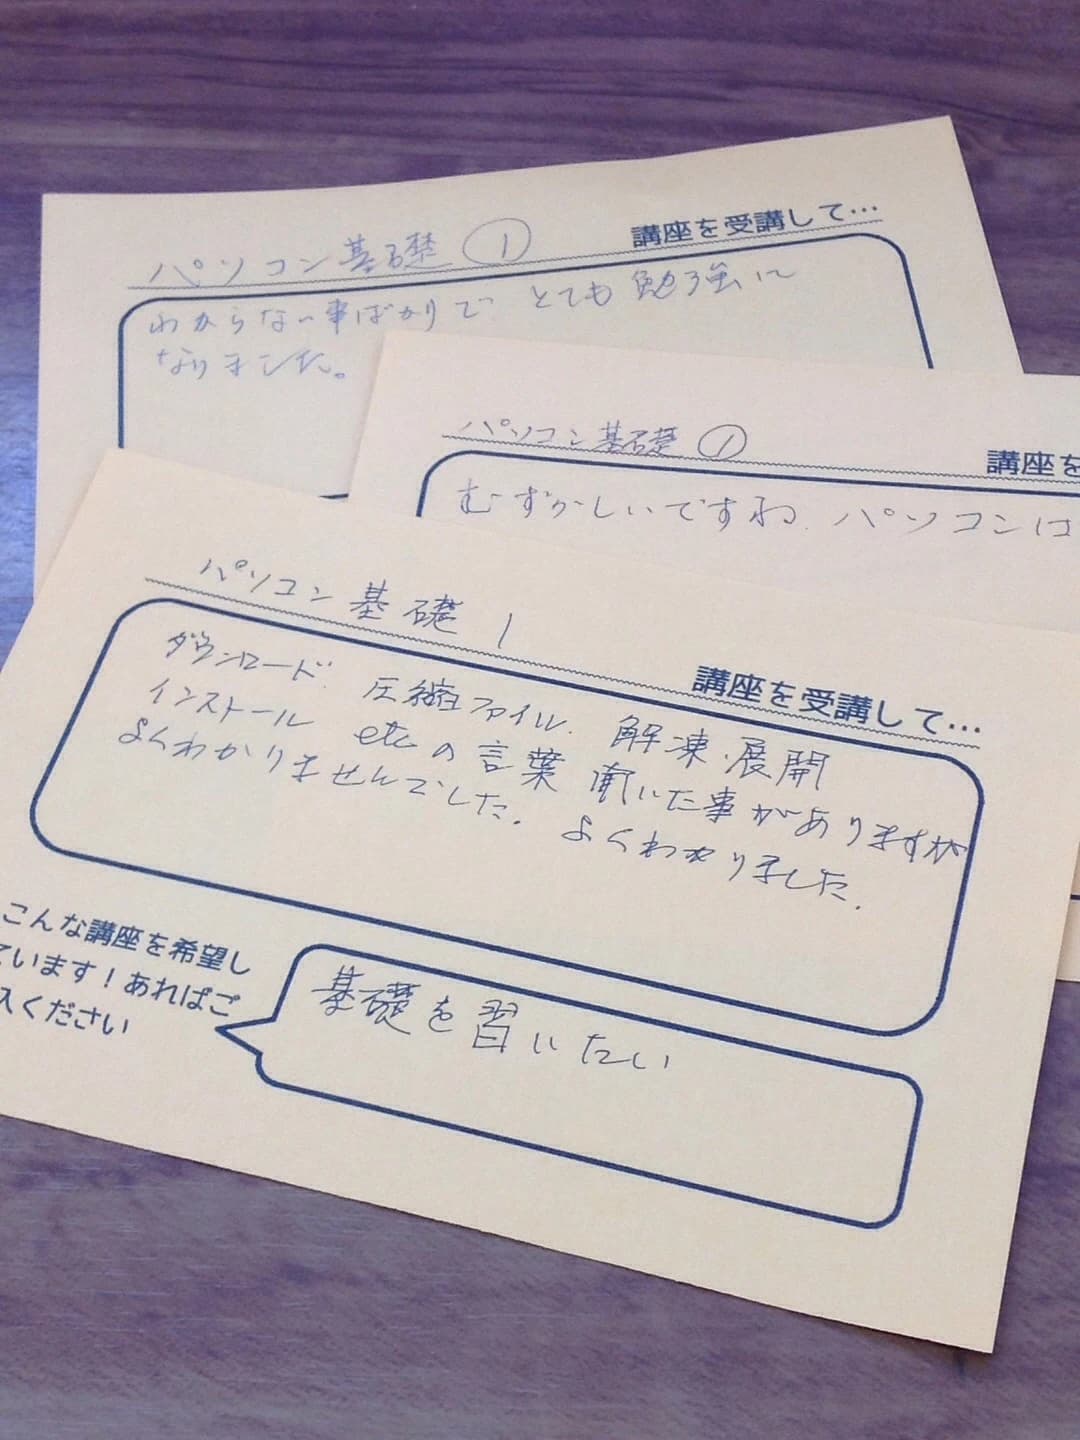 パソコン基礎 ① 講座を受講して…
わからない事ばかりで とても勉強に
なりました。
パソコン基礎 ① 講座を
むずかしいですね. パソコンは
パソコン基礎 1 講座を受講して…
ダウンロード. 圧縮ファイル. 解凍.展開
インストール etcの言葉 聞いた事がありますが
よくわかりませんでした. よくわかりました.
こんな講座を希望し
ています！あればご
入ください
基礎を習いたい